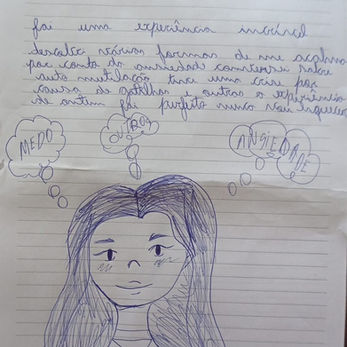 foi uma experiência incrível
descobri várias formas de me acalma
por conta da ansiedade conversar sobre
auto mutilação tive uma crise por
causa de gatilhos e outras a experiência
de ontem foi perfeito nunca vou esquecer
MEDO
OUTROS
ANSIEDADE